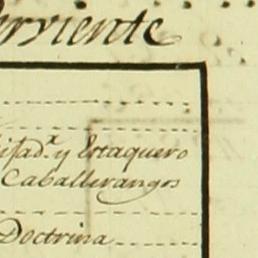 rviente
isad.r y Estaquero
Caballerangos
Doctrina